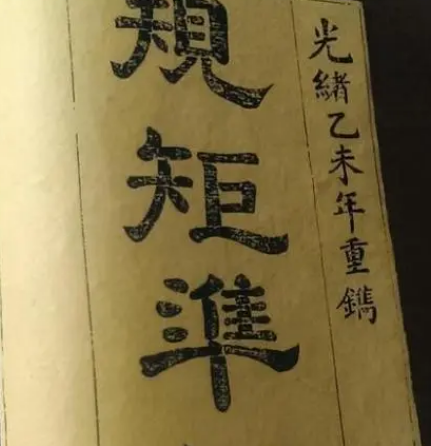 光緒乙未年重鐫
規矩準